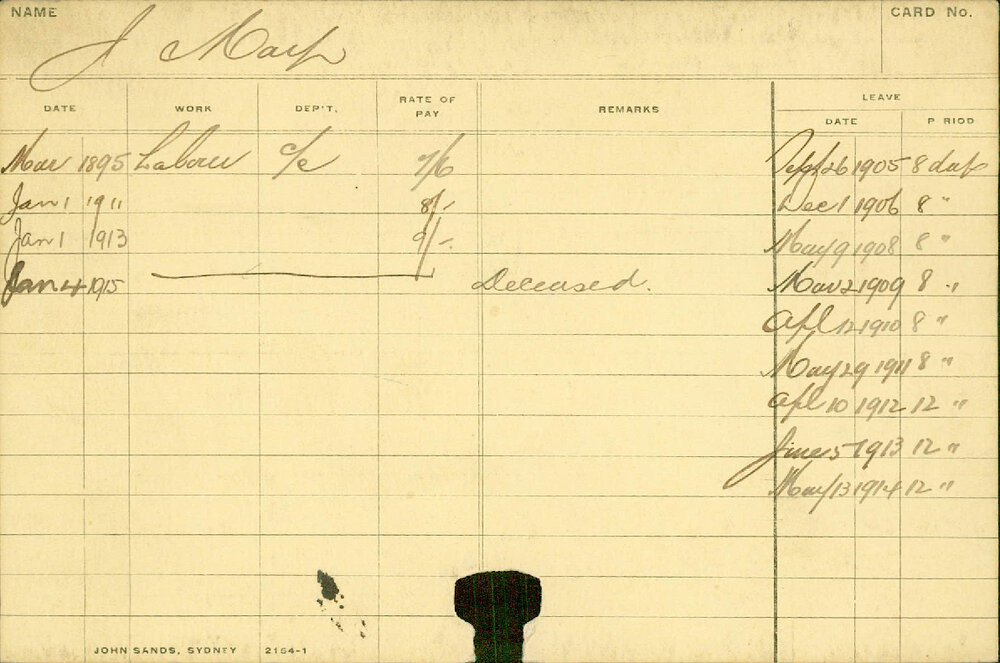 NAME CARD No.
J
DATE WORK DEP'T. RATE OF PAY REMARKS LEAVE
DATE P RIOD
Mar 1895 Labour c/c 7/6 Sept 26 1905 8 days
Jan 1 1911 8/- Dec 1 1906 8 "
Jan 1 1913 9/- May 9 1908 8 "
Jan 4 1915 Deceased. Mar 2 1909 8 "
Apl 12 1910 8 "
May 29 1911 8 "
Apl 10 1912 12 "
June 5 1913 12 "
May 13 1914 12 "
JOHN SANDS, SYDNEY 2164-1